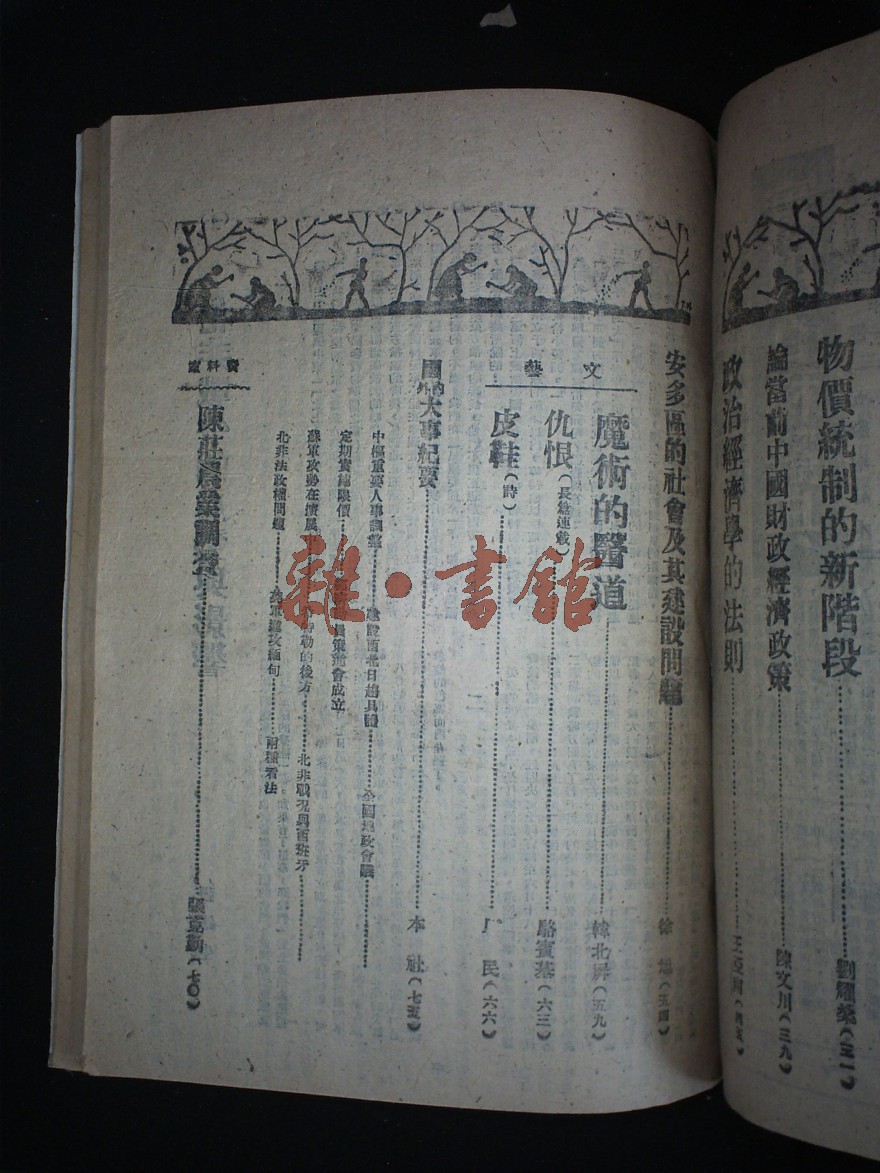 物價統制的新階段 劉耀燊(三一)
論當前中國財政經濟政策 陳文川(三九)
政治經濟學的法則 王亞南(四五)
安多區的社會及其建設問題 徐 (五四)
文藝
魔術的醫道 韓北屏(五九)
仇恨(長篇連載) 駱賓基(六三)
皮鞋(詩) 厂民(六六)
國內外大事紀要 本社(七五)
中樞重要人事調整 建設西北日趨具體 全國地政會議
定期實施限價 策進會成立
蘇軍攻勢在擴展 特勒的後方 北非戰況與西班牙
北非法政權問題 軍進攻緬甸 兩種看法
資料室
陳莊農業調查 張克勤(七〇)
二
雜·書館